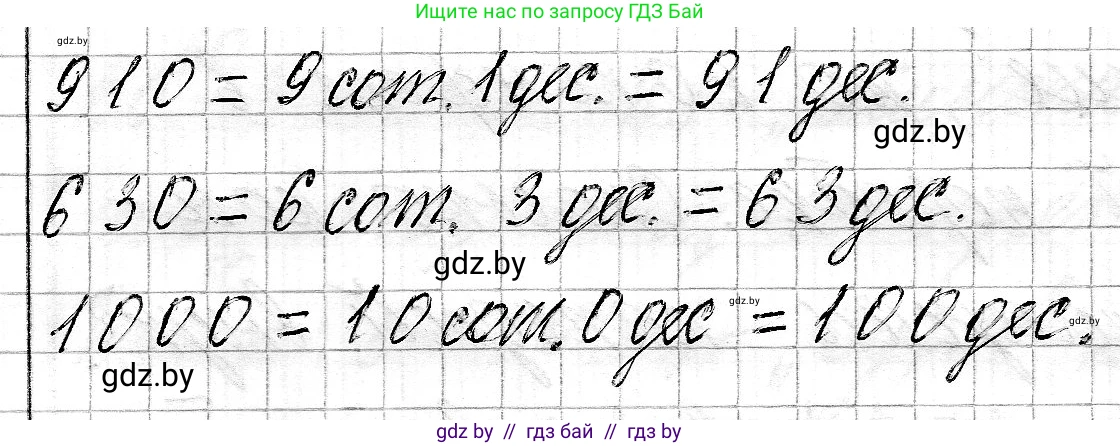 Ищите нас по запросу ГДЗ Бай
gdz.by
910 = 9 сот. 1 дес. = 91 дес.
gdz.by
630 = 6 сот. 3 дес. = 63 дес.
gdz.by
gdz.by
1000 = 10 сот. 0 дес = 100 дес.
gdz.by
gdz.by
gdz.by // гдз бай // гдз by